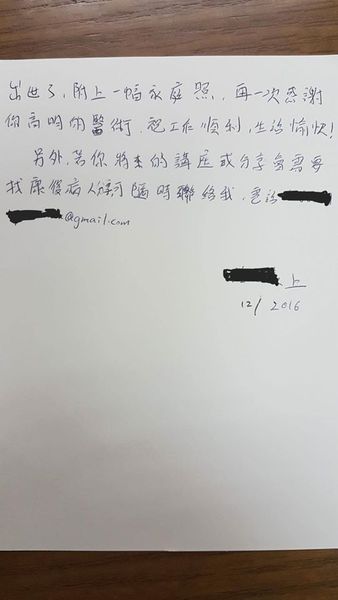 出世了，附上一幅家庭照，再一次感謝
你高明的醫術，祝工作順利，生活愉快！
另外，若你將來的講座或分享會需要
找康復病人，歡迎隨時聯絡我，電話
@gmail.com
上
12/ 2016